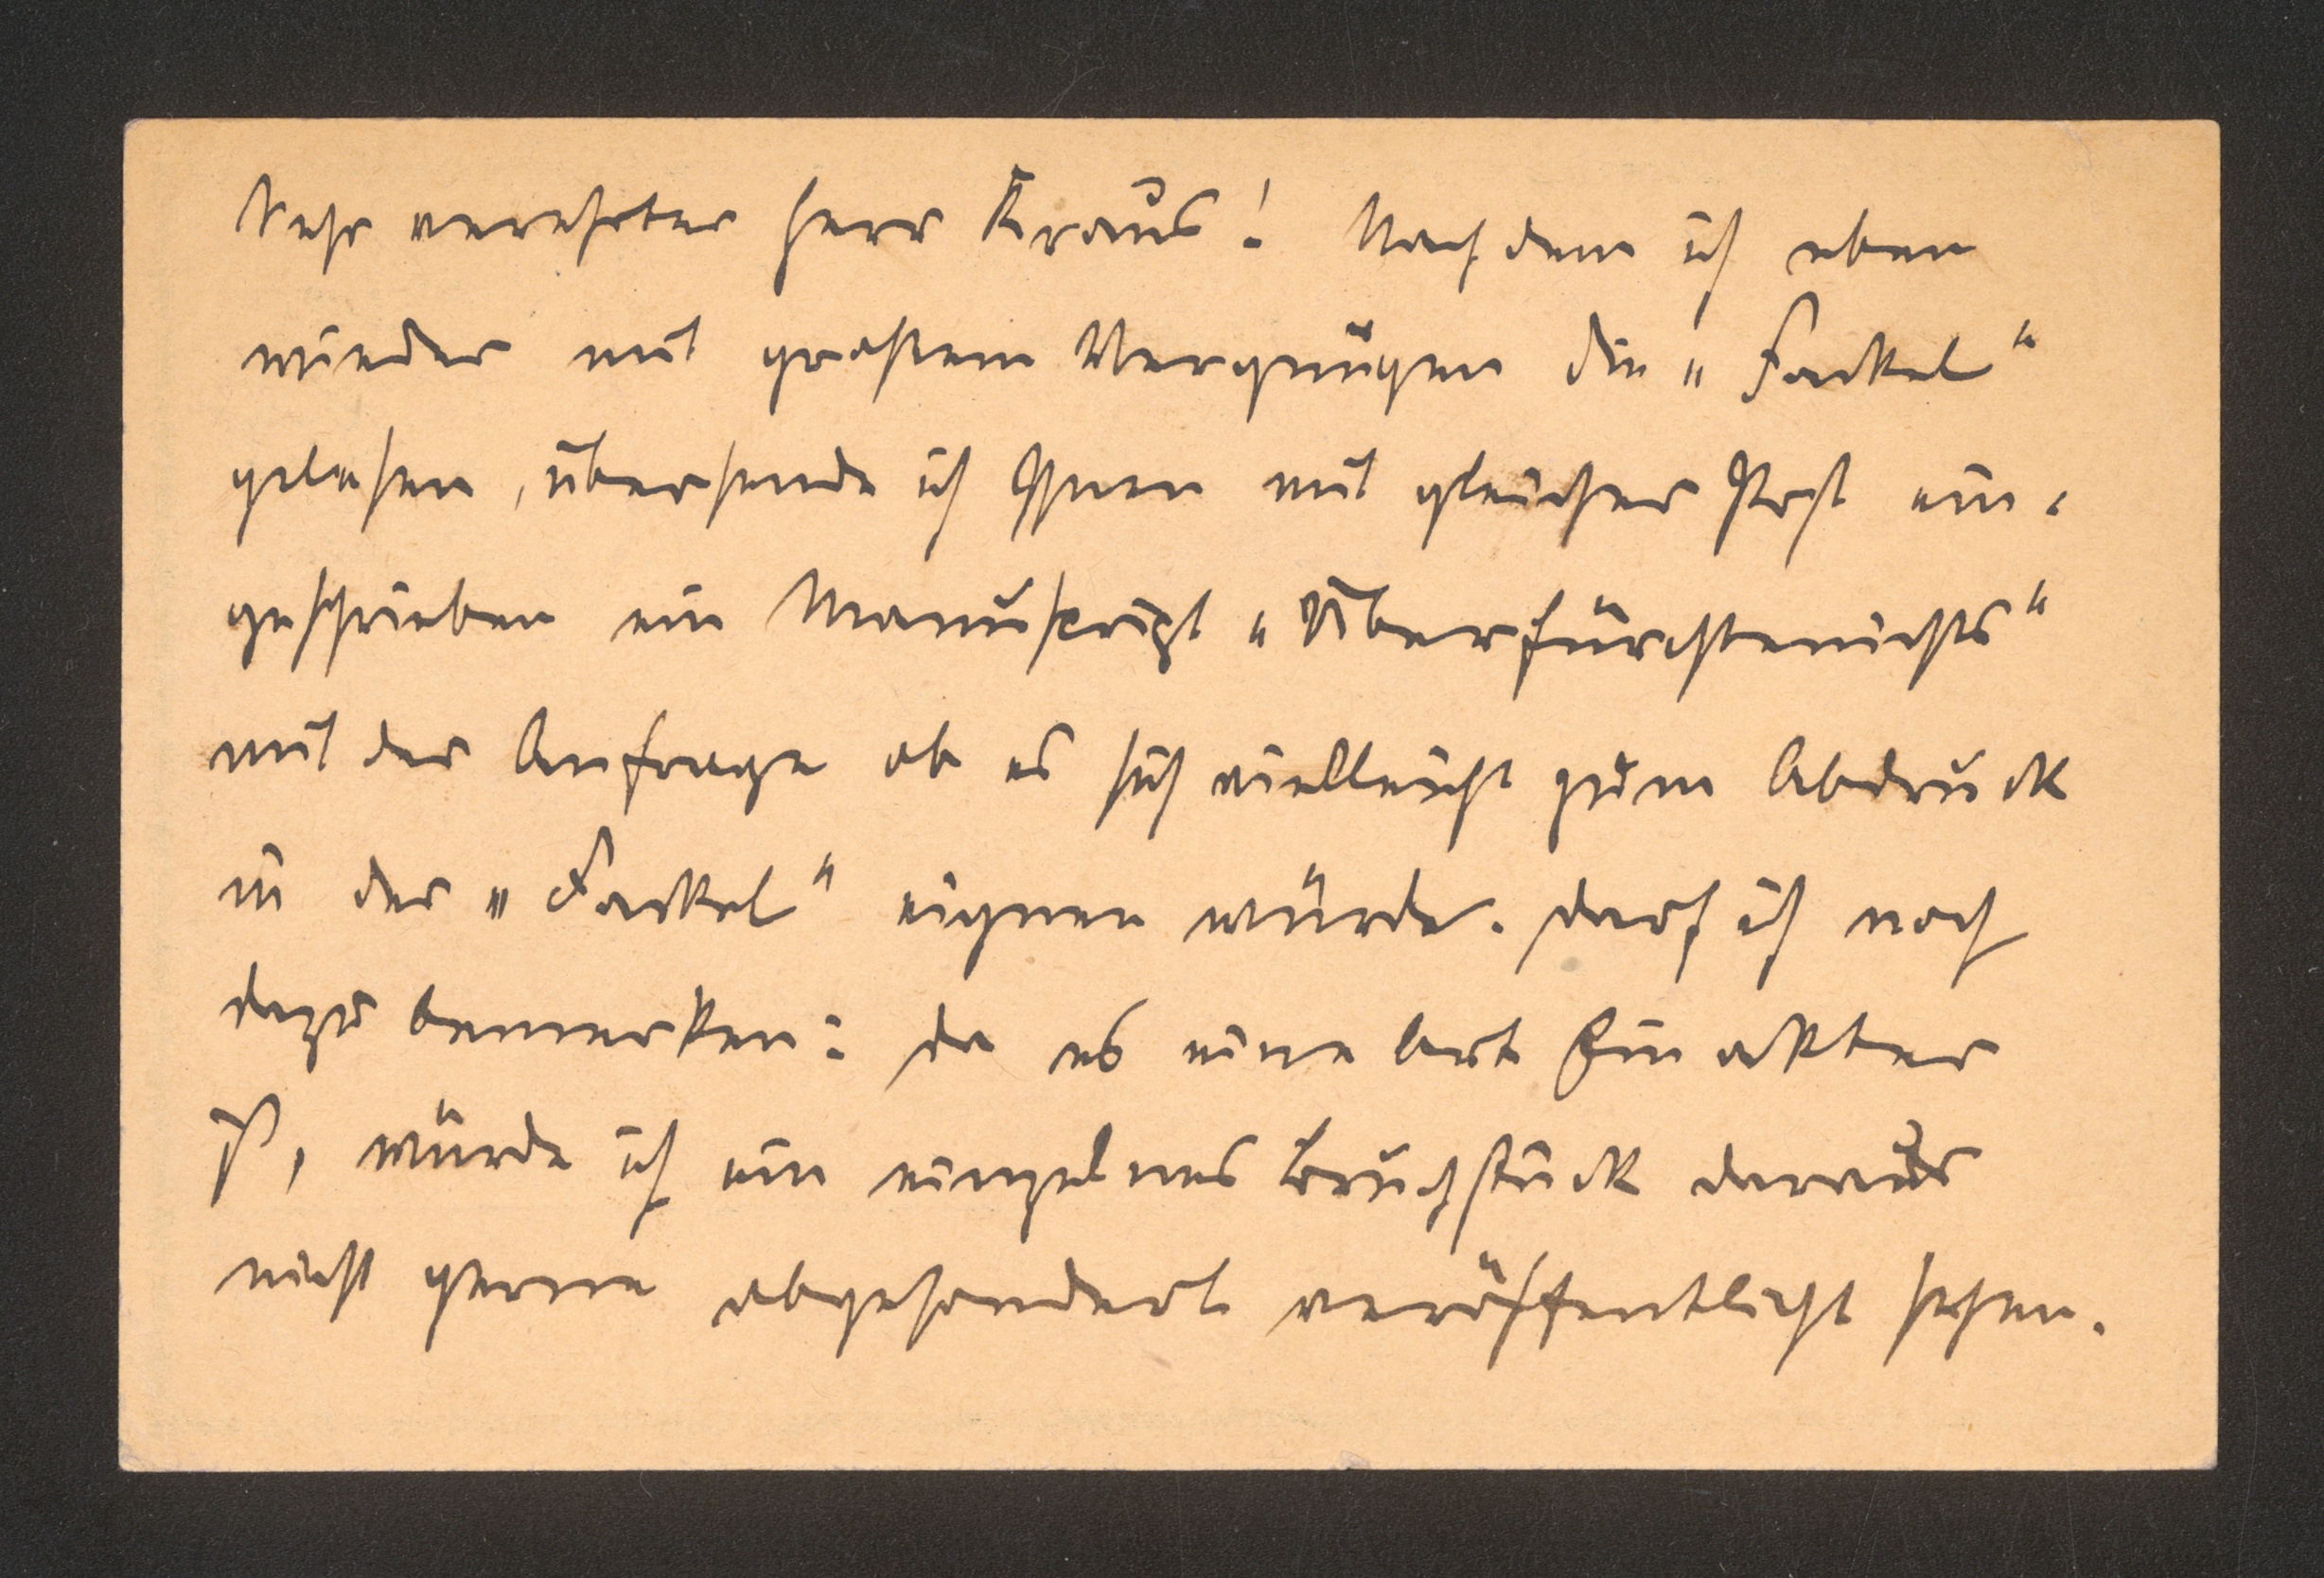 Sehr verehrter Herr Kraus! Nachdem ich eben
wieder mit großem Vergnügen die „Fackel“
gelesen, übersende ich Ihnen mit gleicher Post ein-
geschrieben ein Manuskript „Überfürchtenichts“
mit der Anfrage ob es sich vielleicht zum Abdruck
in der „Fackel“ eignen würde. Darf ich noch
dazu bemerken: da es eine Art Einakter
ist, würde ich ein einzelnes Bruchstück daraus
nicht gerne abgesondert veröffentlicht sehen.